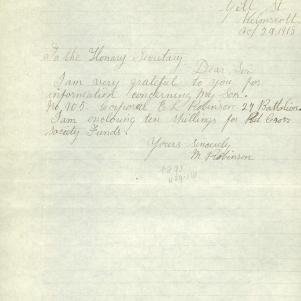 Gill St
Helmscott
Oct 29. 1915
To the Honary Secretary
Dear Sir
I am very grateful to you for
information concerning my Son.
No, 905 corporal E L Robinson 27 Battalion.
I am enclosing ten shillings for Red Cross
Society Funds.
Yours sincerely
M Robinson